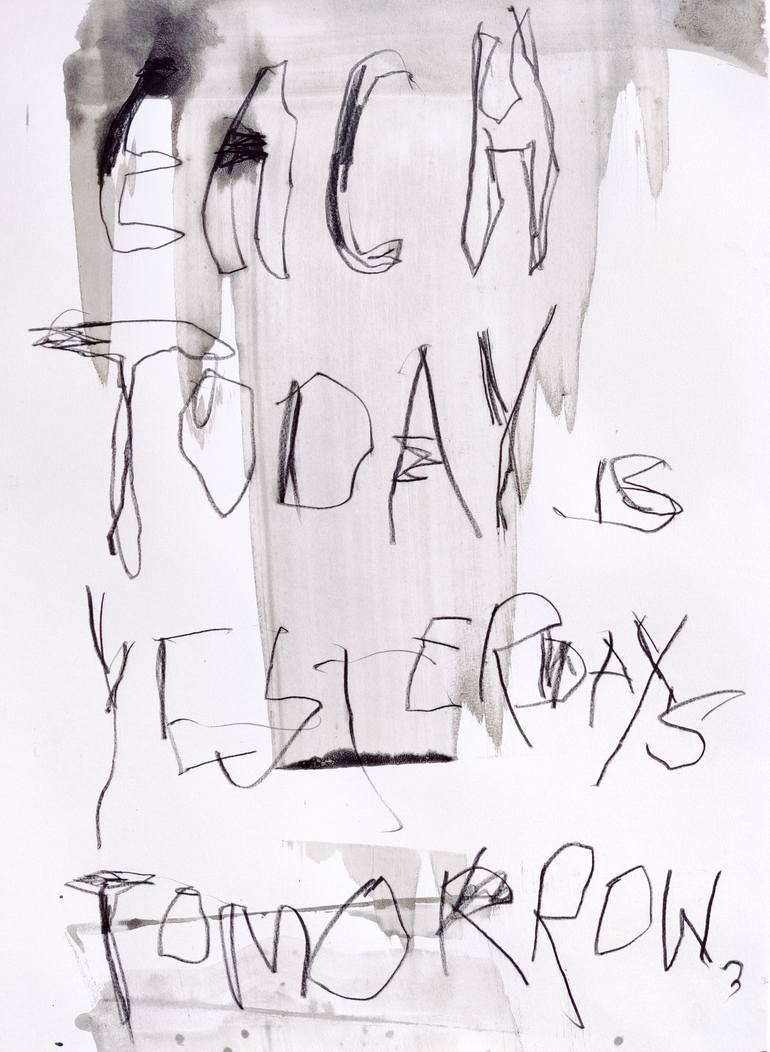 EACH
TODAY IS
YESTERDAYS
TOMORROW,